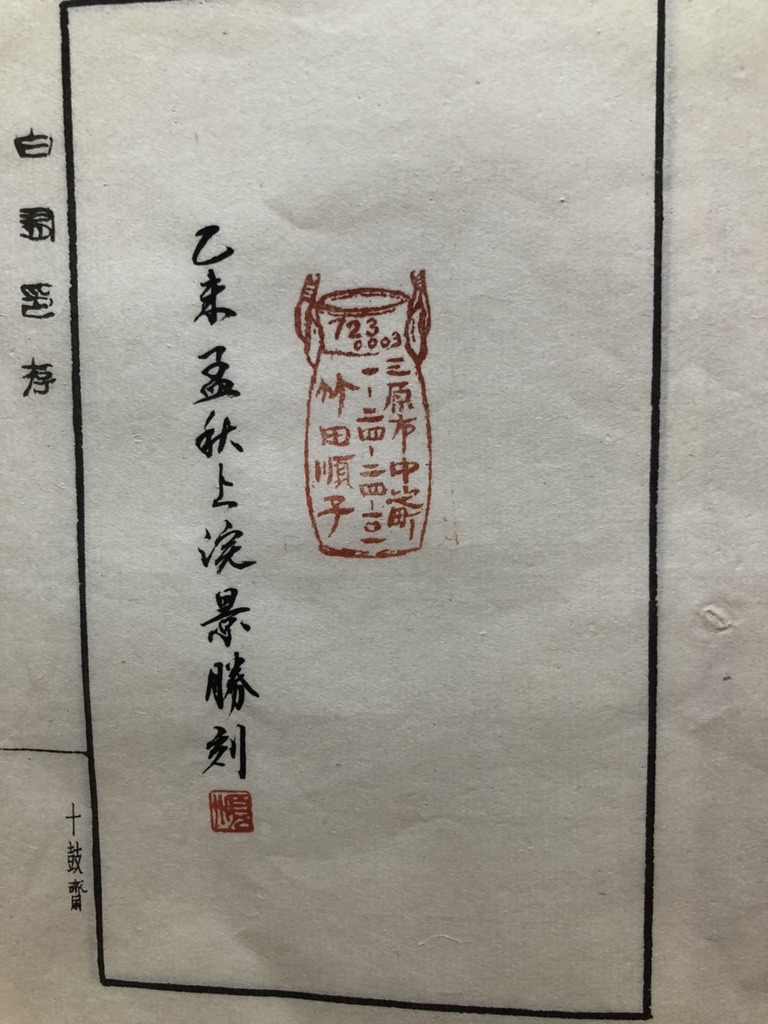 723
0003
三原市中之町
一-二四-二四-一〇一
竹田順子
乙未孟秋上浣景勝刻
十鼓齋